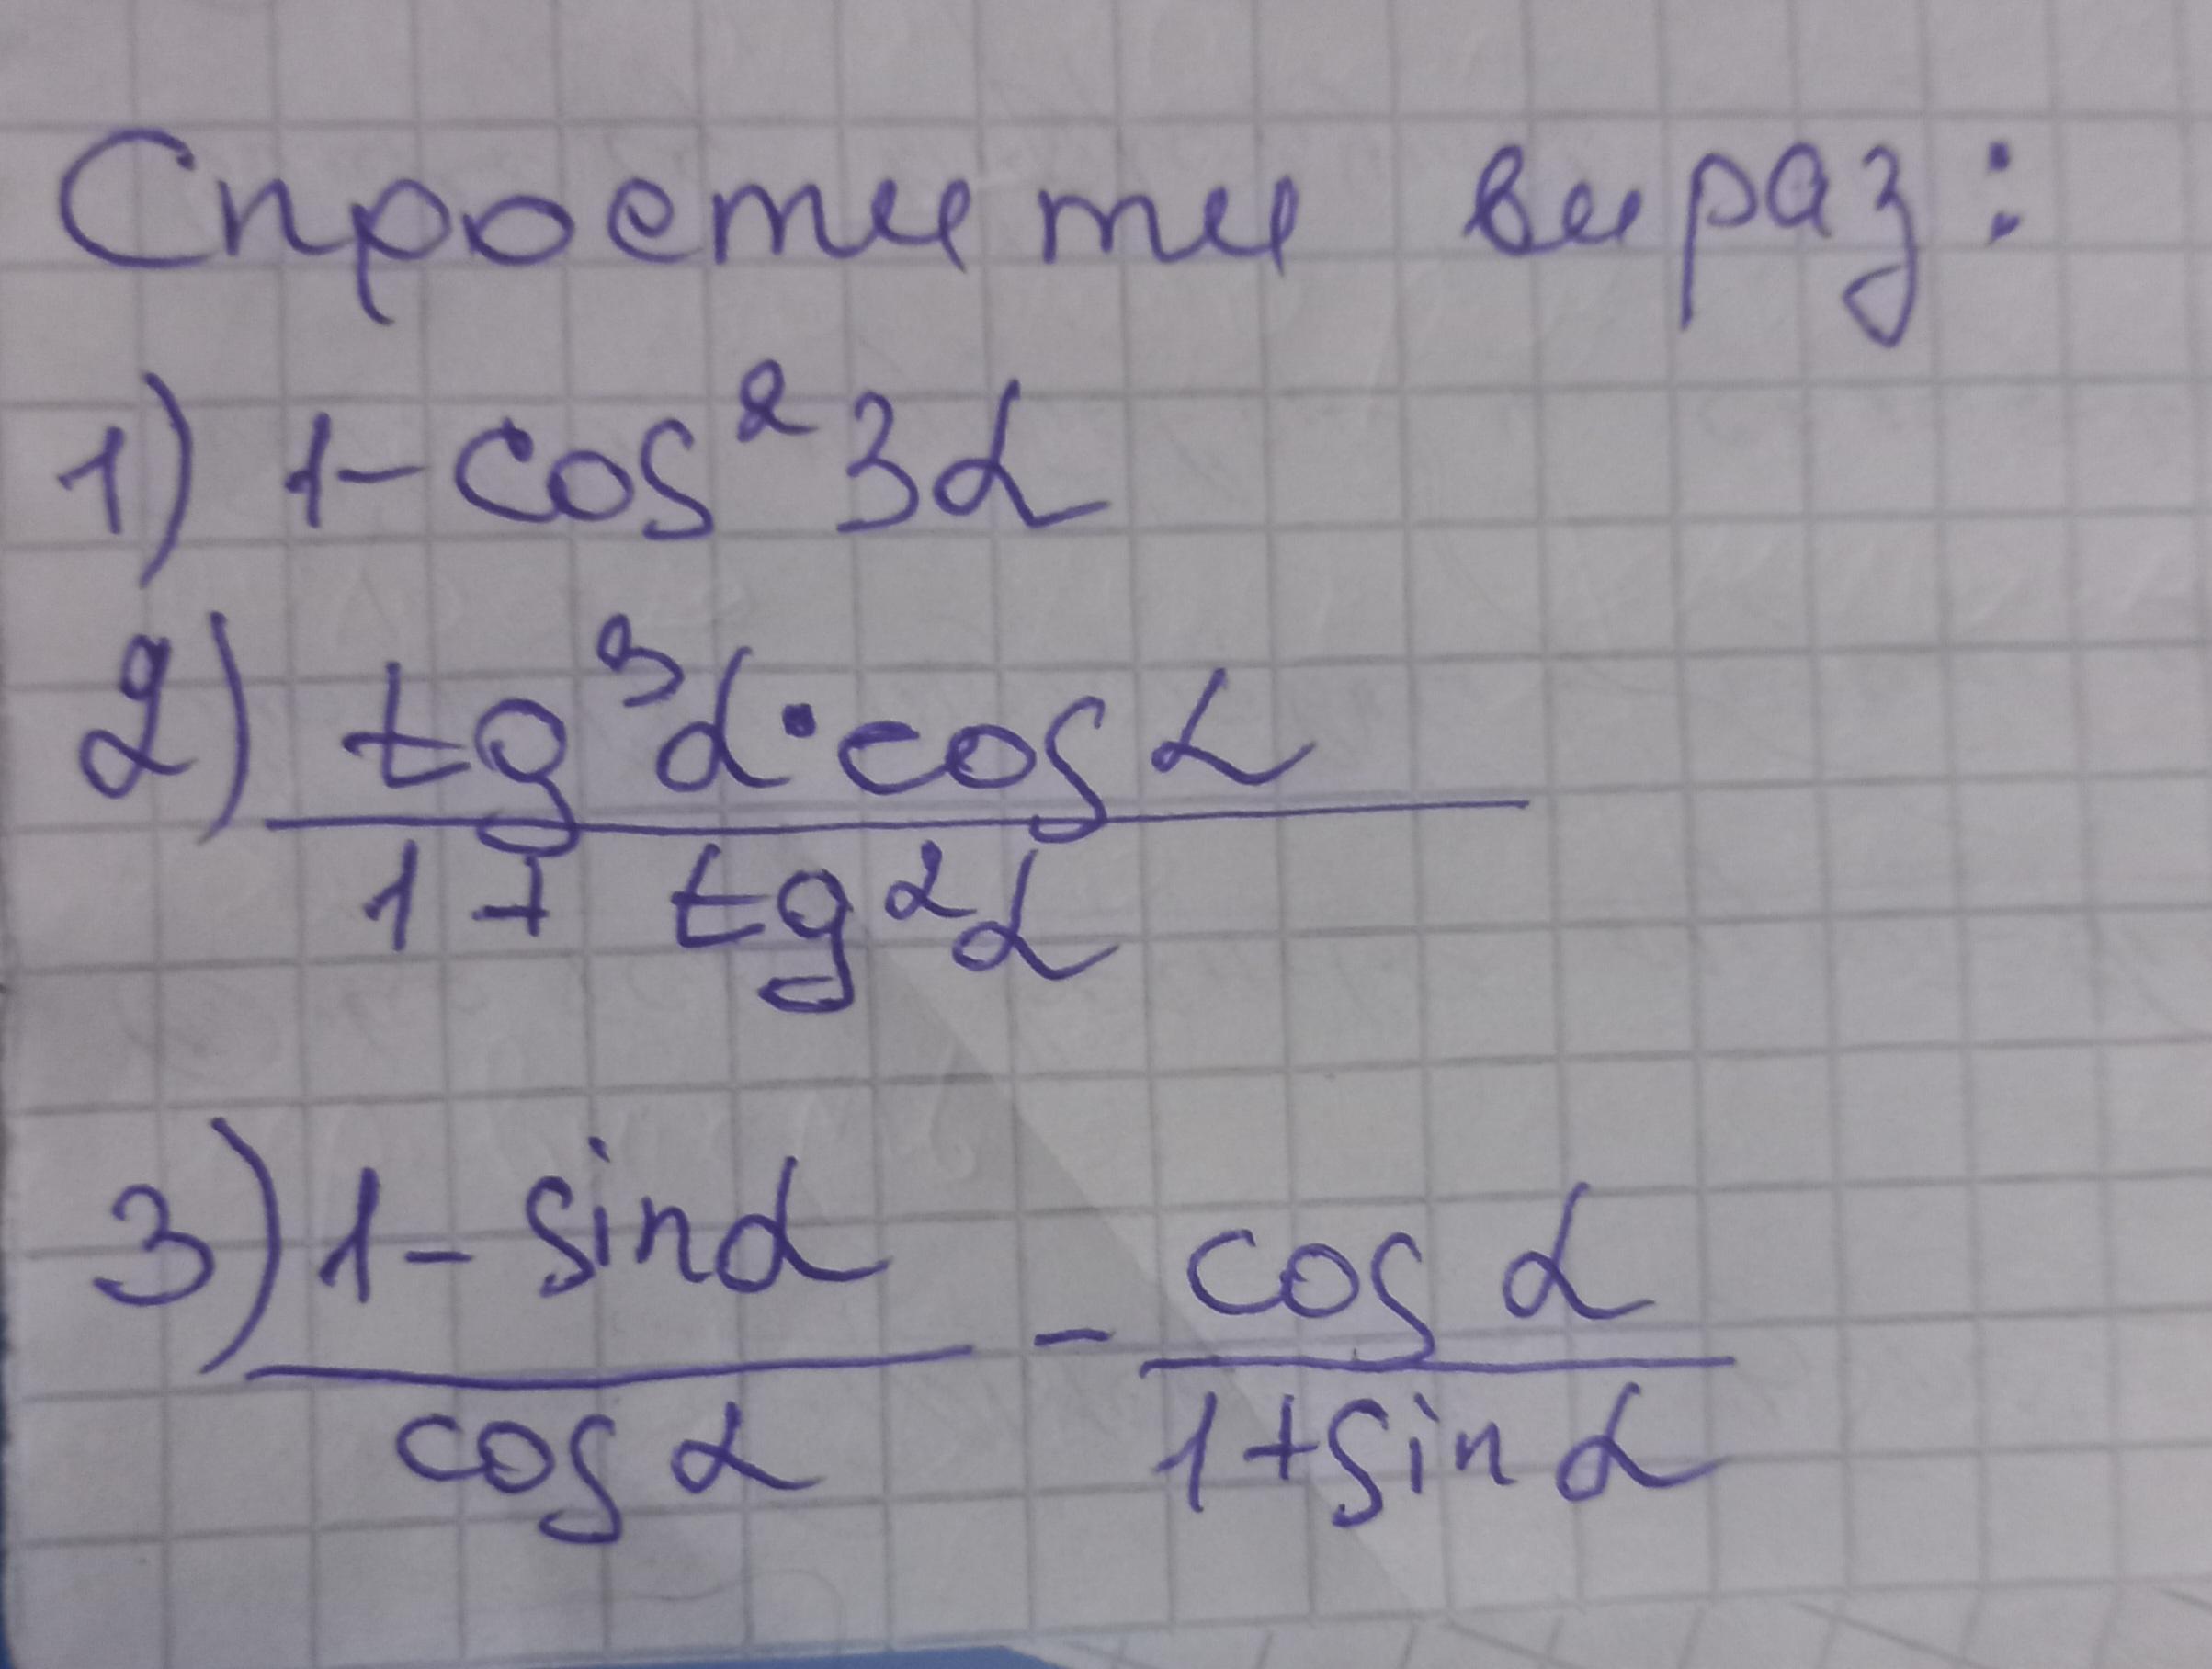 Спростити вираз:
1) 1-cos²3α
2) tg³α·cosα
1+ tg²α
3) 1-sinα - cos α
cos α 1+sin α